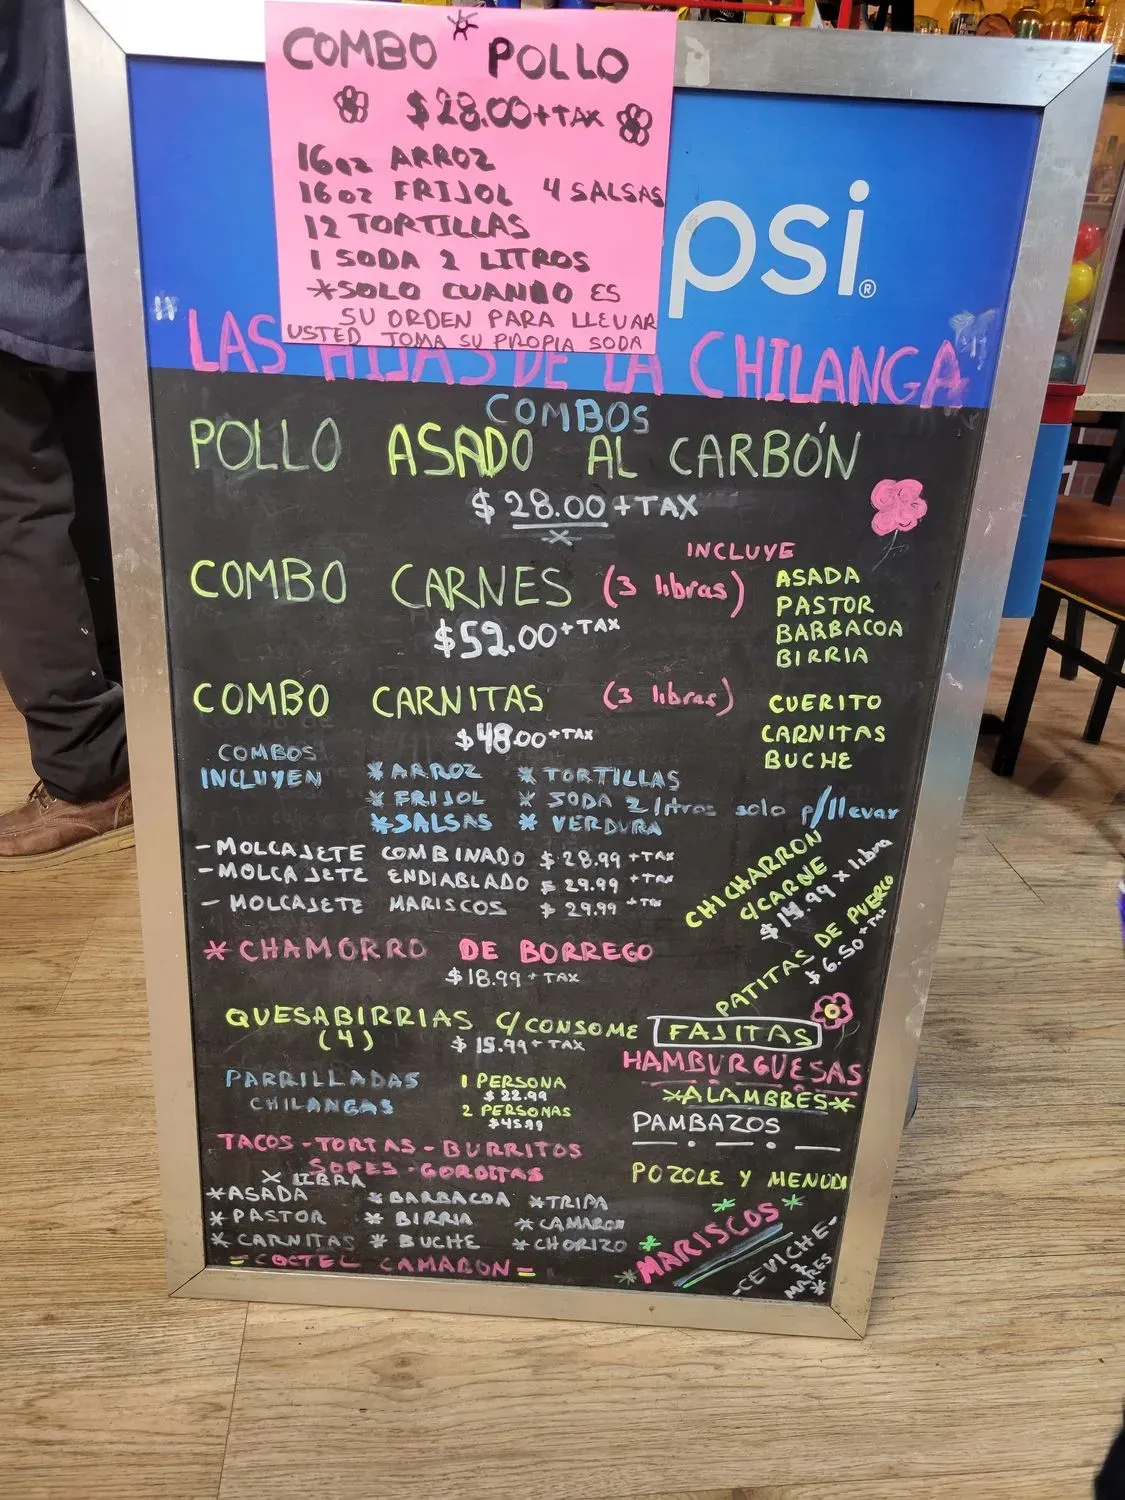 COMBO * POLLO
$28.00+TAX
16oz ARROZ
16oz FRIJOL 4 SALSAS
12 TORTILLAS
1 SODA 2 LITROS
*SOLO CUANDO ES
SU ORDEN PARA LLEVAR
USTED TOMA SU PROPIA SODA
psi®
"LAS HIJAS DE LA CHILANGA"
COMBOS
POLLO ASADO AL CARBÓN
$28.00+TAX
x
INCLUYE
COMBO CARNES (3 libras)
$52.00+TAX
ASADA
PASTOR
BARBACOA
BIRRIA
COMBO CARNITAS (3 libras)
$48.00+TAX
CUERITO
CARNITAS
BUCHE
COMBOS
INCLUYEN
*ARROZ * TORTILLAS
*FRIJOL * SODA 2 litros solo p/llevar
*SALSAS * VERDURA
-MOLCAJETE COMBINADO $28.99+TAX
-MOLCAJETE ENDIABLADO $29.99+TAX
-MOLCAJETE MARISCOS $29.99+TAX
CHICHARRON
C/CARNE
$14.99 x libra
PATITAS DE PUERCO
$6.50+TAX
*CHAMORRO DE BORREGO
$18.99+TAX
QUESABIRRIAS C/CONSOME
(4) $15.99+TAX
FAJITAS
HAMBURGUESAS
*ALAMBRES*
PAMBAZOS
PARRILLADAS
CHILANGAS
1 PERSONA
$22.99
2 PERSONAS
$45.99
TACOS-TORTAS-BURRITOS
SOPES-GORDITAS
POZOLE Y MENUDO
X LIBRA
*ASADA *BARBACOA *TRIPA
*PASTOR *BIRRIA *CAMARON
*CARNITAS *BUCHE *CHORIZO
=COCTEL CAMARON=
*MARISCOS*
-CEVICHE-
*MARES*